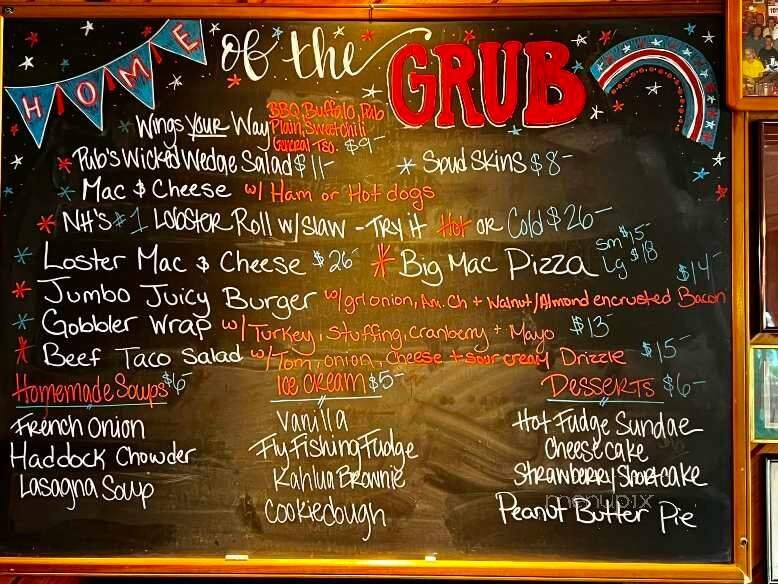 HOME of the GRUB
Wings Your Way BBQ, Buffalo, Pub
Plain, Sweet chili
General Tso. $9-
* Pub's Wicked Wedge Salad $11-
* Spud Skins $8-
* Mac & Cheese w/ Ham or Hot dogs
* NH's #1 Lobster Roll w/slaw - Try it Hot or Cold $26-
* Loster Mac & Cheese $26-
* Big Mac Pizza sm $15-
Lg $18
* Jumbo Juicy Burger w/grl onion, Am. Ch + Walnut/Almond encrusted Bacon $14-
* Gobbler Wrap w/Turkey, Stuffing, Cranberry + Mayo $13-
* Beef Taco Salad w/Tom, onion, Cheese + sour cream Drizzle $15-
Homemade Soups $6-
French Onion
Haddock Chowder
Lasagna Soup
Ice Cream $5-
Vanilla
Fly Fishing Fudge
Kahlua Brownie
Cookiedough
Desserts $6-
Hot Fudge Sundae
Cheesecake
Strawberry Shortcake
Peanut Butter Pie
menupix